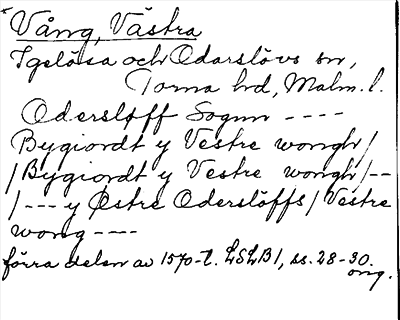 *Vång, Västra
Igelösa och Odarslövs sn,
Torna hd, Malm. l.
Odersløff Sognn ----
Bygiordt y Vestre wongh/
/Bygiordt y Vestre wongh/--
/--- y Østre Oderslöffs/ Vestre
wong ----
förra delen av 1570-t. LSLB1, ss. 28-30.
orig.